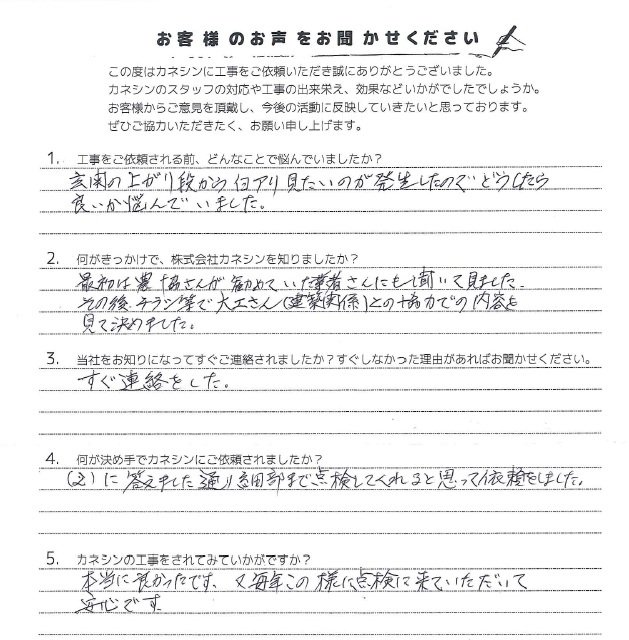 お客様のお声をお聞かせください
この度はカネシンに工事をご依頼いただき誠にありがとうございました。
カネシンのスタッフの対応や工事の出来栄え、効果などいかがでしたでしょうか。
お客様からご意見を頂戴し、今後の活動に反映していきたいと思っております。
ぜひご協力いただきたく、お願い申し上げます。
1. 工事をご依頼される前、どんなことで悩んでいましたか？
玄関の上がり段から白アリ見たいのが発生したのでどうしたら
良いか悩んでいました。
2. 何がきっかけで、株式会社カネシンを知りましたか？
最初は農協さんが勧めていた業者さんにも聞いて見ました.
その後、チラシ等で大工さん(建築関係)との協力での内容を
見て決めました。
3. 当社をお知りになってすぐご連絡されましたか？すぐしなかった理由があればお聞かせください。
すぐ連絡をした。
4. 何が決め手でカネシンにご依頼されましたか？
(2)に答えました通り細部まで点検してくれると思って依頼をしました。
5. カネシンの工事をされてみていかがですか？
本当に良かったです、又毎年この様に点検に来ていただいて
安心です